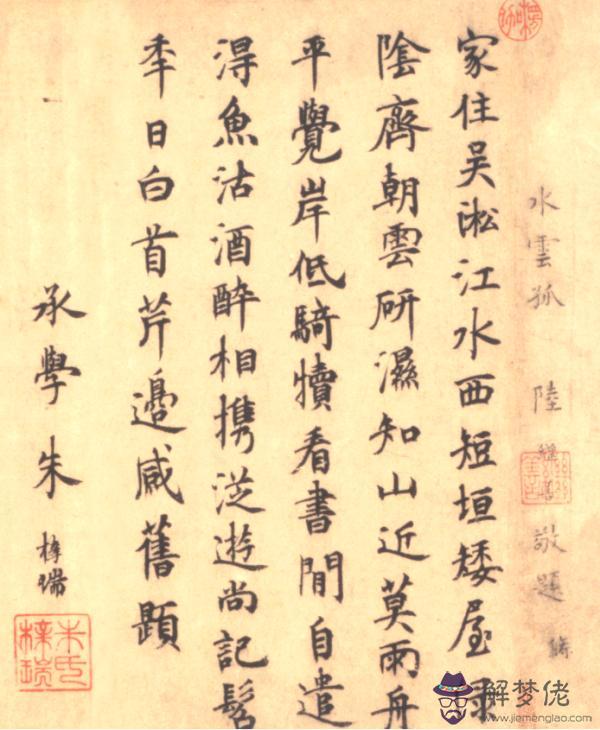 水雲孤 陸繼善敬題
家住吳淞江水西短垣矮屋
陰齊朝雲研濕知山近莫雨舟
平覺岸低騎犢看書閒自遣
淂魚沽酒醉相携從遊尚記髫
秊日白首芹邊感舊題
承學朱
朱氏
解梦佬
https://www.jiemenglao.com/